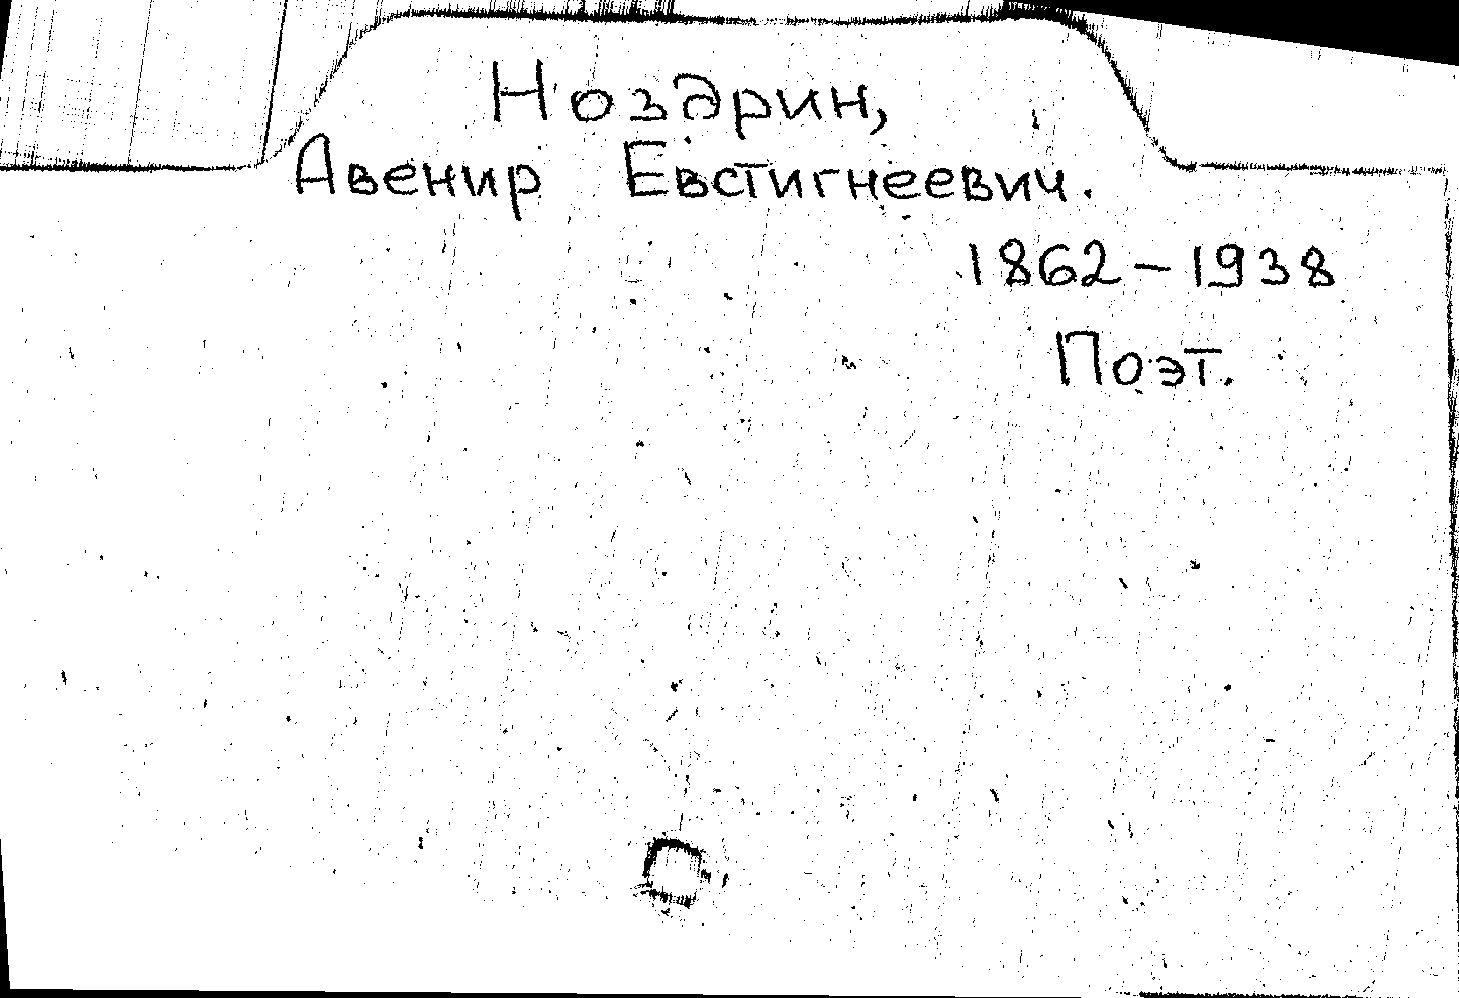 Ноздрин,
Авенир Евстигнеевич.
1862-1938
Поэт.